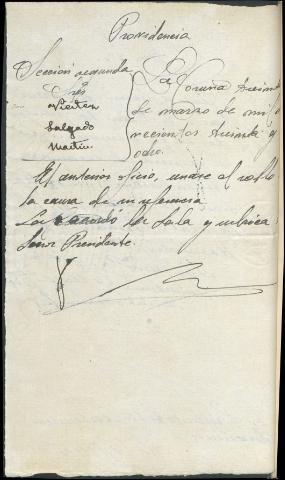 Providencia
Sección segunda
Sres
Vieitez
Salgado
Martin
La Coruña treinta
de marzo de mil no
vecientos treinta y
ocho.
El anterior oficio, unase al rollo
la causa de su referencia
Lo acordó la Sala y rubrica
Señor Presidente.